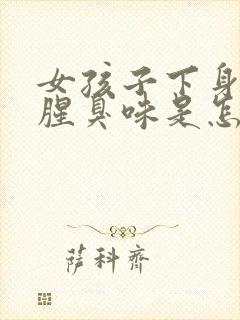 女孩子下身
腥臭味是怎
萨科齐